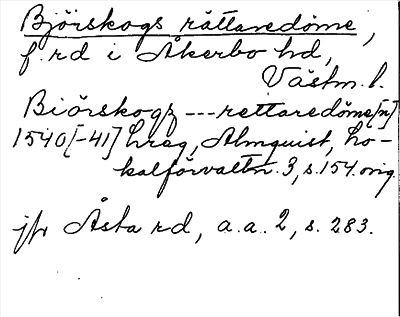 Björskogs rättaredöme,
f. rd i Åkerbo hd,
Västm. l.
Biörskogz --- rettaredöme[n]
1540[-41] hreg, Almquist, Lo-
kalförvaltn. 3, s. 154 orig.
jfr Åsta rd, a.a. 2, s. 283.